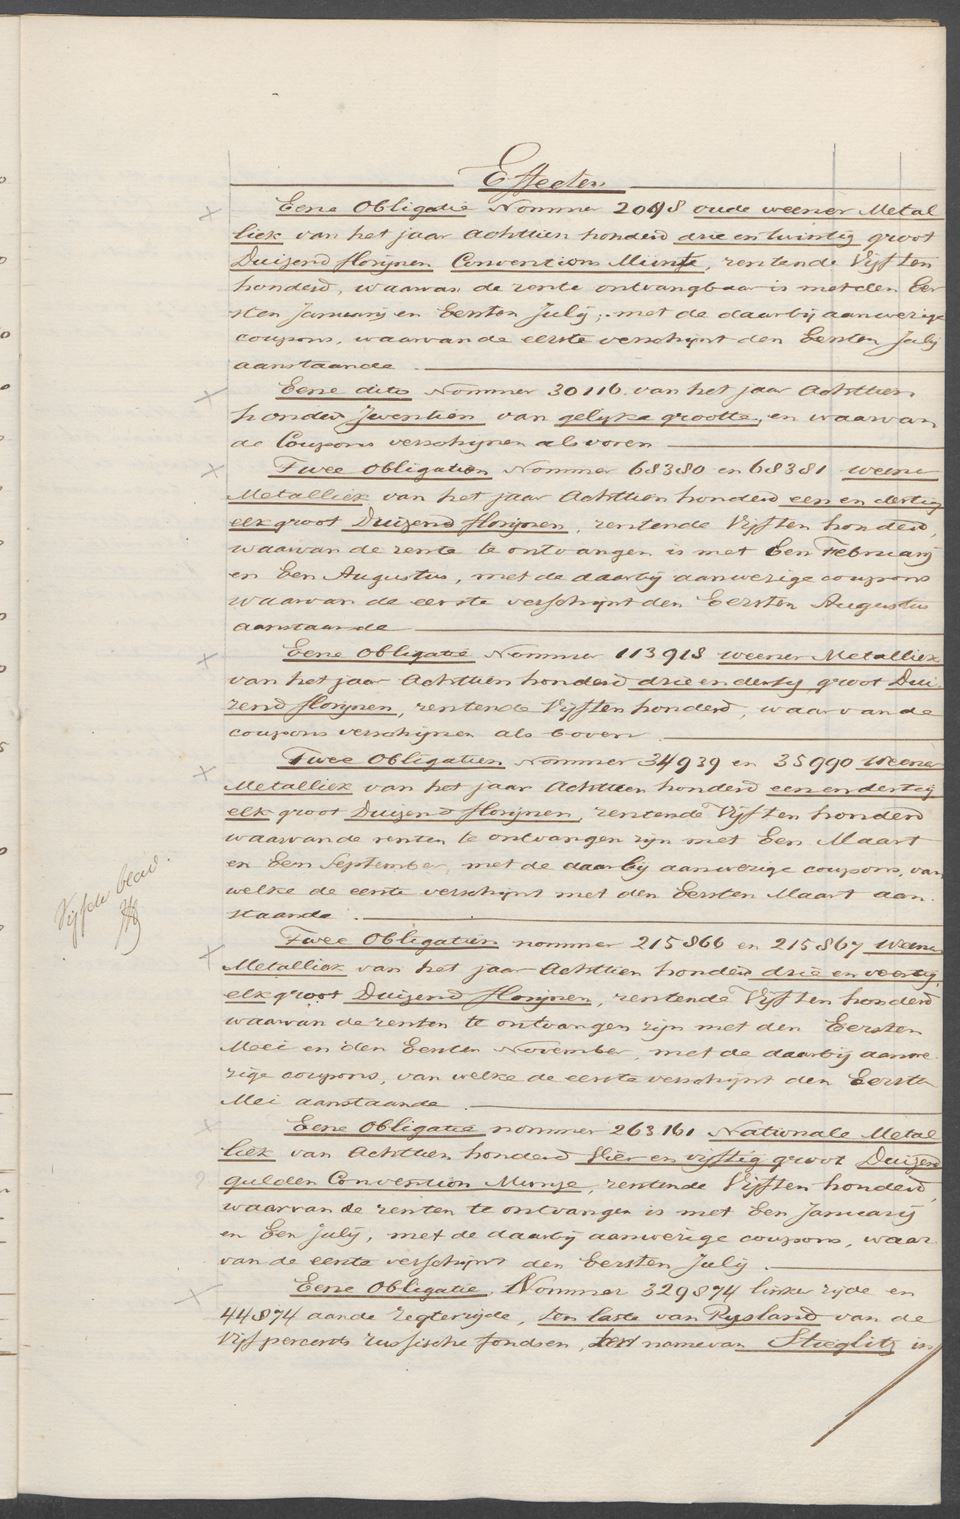 Effecten
Eene Obligatie Nommer 2098 oude weener Metal
liek van het jaar Achttien honderd drie en twintig groot
Duizend florijnen Conventions Munte, rentende Vijf ten
honderd, waarvan de rente ontvangbaar is met den Eer
sten Januarij en Eersten Julij; met de daarbij aanwezige
coupons, waarvan de eerste verschijnt den Eersten Julij
aanstaande
Eene dito Nommer 30116 van het jaar Achttien
honderd van gelijke grootte, en waarvan
de Coupons verschijnen als voren
Twee Obligatien Nommer 68380 en 68381 weener
Metalliek van het jaar Achttien honderd een en dertig
elk groot Duizend florijnen, rentende Vijf ten honderd,
waarvan de rente te ontvangen is met Een Februarij
en Een Augustus, met de daarbij aanwezige coupons
waarvan de eerste verschijnt den Eersten Augustus
aanstaande
Eene Obligatie Nommer 113918 weener Metalliek
van het jaar Achttien honderd drie en dertig groot Dui
zend florijnen, rentende Vijf ten honderd, waarvan de
coupons verschijnen als boven
Twee Obligatien Nommer 34939 en 35990 Weener
Metalliek van het jaar Achttien honderd een en dertig
elk groot Duizend florijnen, rentende Vijf ten honderd
waarvan de renten te ontvangen zijn met Een Maart
en Een September, met de daarbij aanwezige coupons, van
welke de eerste verschijnt met den Eersten Maart aan
staande
Vijfde blad.
Twee Obligatien nommer 215866 en 215867 Weener
Metalliek van het jaar Achttien honderd drie en veertig,
elk groot Duizend florijnen, rentende Vijf ten honderd
waarvan de renten te ontvangen zijn met den Eersten
Mei en den Eersten November, met de daarbij aanwe
zige coupons, van welke de eerste verschijnt den Eersten
Mei aanstaande
Eene Obligatie nommer 263161 Nationale Metal
liek van Achttien honderd Vier en vijftig groot Duizend
gulden Convention Munze, rentende Vijf ten honderd,
waarvan de renten te ontvangen is met Een Januarij
en Een Julij, met de daarbij aanwezige coupons, waar
van de eerste verschijnt den Eersten Julij
Eene Obligatie, Nommer 329874 linker zijde en
44874 aan de regterzijde, ten laste van Rusland van de
Vijf percents russische fondsen, ten name van Stieglitz in